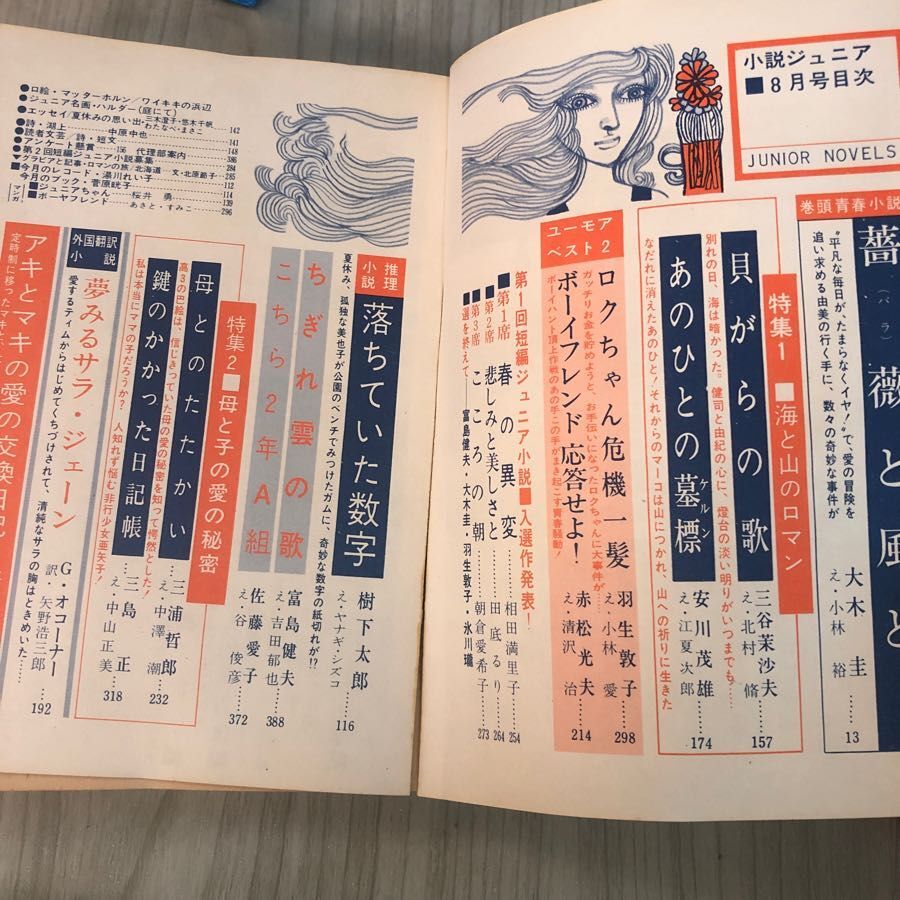 小説ジュニア
■8月号目次
JUNIOR NOVELS
巻頭青春小説
薔薇と風と
（バラ）
“平凡な毎日が、たまらなくイヤ！”で愛の冒険を
追い求める由美の行く手に、数々の奇妙な事件が
大木圭……13
え・小林 裕
特集1■海と山のロマン
貝がらの歌
別れの日、海は暗かった。健司と由紀の心に、燈台の淡い明りがいつまでも…
三谷茉沙夫……157
え・北村 脩
あのひとの墓標
ケルン
なだれに消えたあのひと！それからのマーコは山につかれ、山への祈りに生きた
安川茂雄……174
え・江夏次郎
ユーモア
ベスト2
ロクちゃん危機一髪
ガッチリお金を貯めようと、お手伝いになったロクちゃんに大事件が……
羽生敦子……298
え・小林 愛
ボーイフレンド応答せよ！
ボーイハント頂上作戦のあの手この手がまき起こす青春騒動！
赤松光夫……214
え・清沢 治
第1回短編ジュニア小説■入選作発表！
■第1席 春の異変……相田満里子……254
■第2席 悲しみと美しさと……田底るり……264
■第3席 こころの朝……朝倉愛希子……273
■選を終えて――富島健夫・大木圭・羽生敦子・氷川瓏
推理
小説
落ちていた数字
夏休み、孤独な美也子が公園のベンチでみつけたガムに、奇妙な数字の紙切れが!?
樹下太郎……116
え・ヤナギ・シズコ
ちぎれ雲の歌
富島健夫……388
え・吉田郁也
こちら2年A組
佐藤愛子……372
え・谷 俊彦
特集2■母と子の愛の秘密
母とのたたかい
高3の巴絵は、信じきっていた母の愛の秘密を知って愕然とした！
三浦哲郎……232
え・中澤 潮
鍵のかかった日記帳
私は本当にママの子だろうか？ 人知れず悩む非行少女亜矢子！
三島 正……318
え・中山正美
外国翻訳
小説
夢みるサラ・ジェーン
愛するティムからはじめてくちづけされて、清純なサラの胸はときめいた……
G・オコーナー……192
訳・矢野浩三郎
アキとマキの愛の交換日記
定時制に移ったマキと、
●口絵・マッターホルン／ワイキキの浜辺
●ジュニア名画・ハルダー（庭にて）
●エッセイ／夏休みの思い出・三木澄子・悠木千帆
わたなべ・まさこ 142
●詩・湖上…… 中原中也……141
●読者文芸／詩・短文……148
●アンケート懸賞……156 代理部案内……386
●第2回短編ジュニア小説募集……284
▼グラビアと記事・ロマンの旅／北海道 文・北原節子……245
■今月のレコード・湯川れい子……112
今月のブック・菅原眺子……114
マンガ
■ジュニアちゃん…… 桜井 勇……139
■ボニヤフレンド…… あさと・すみこ……296